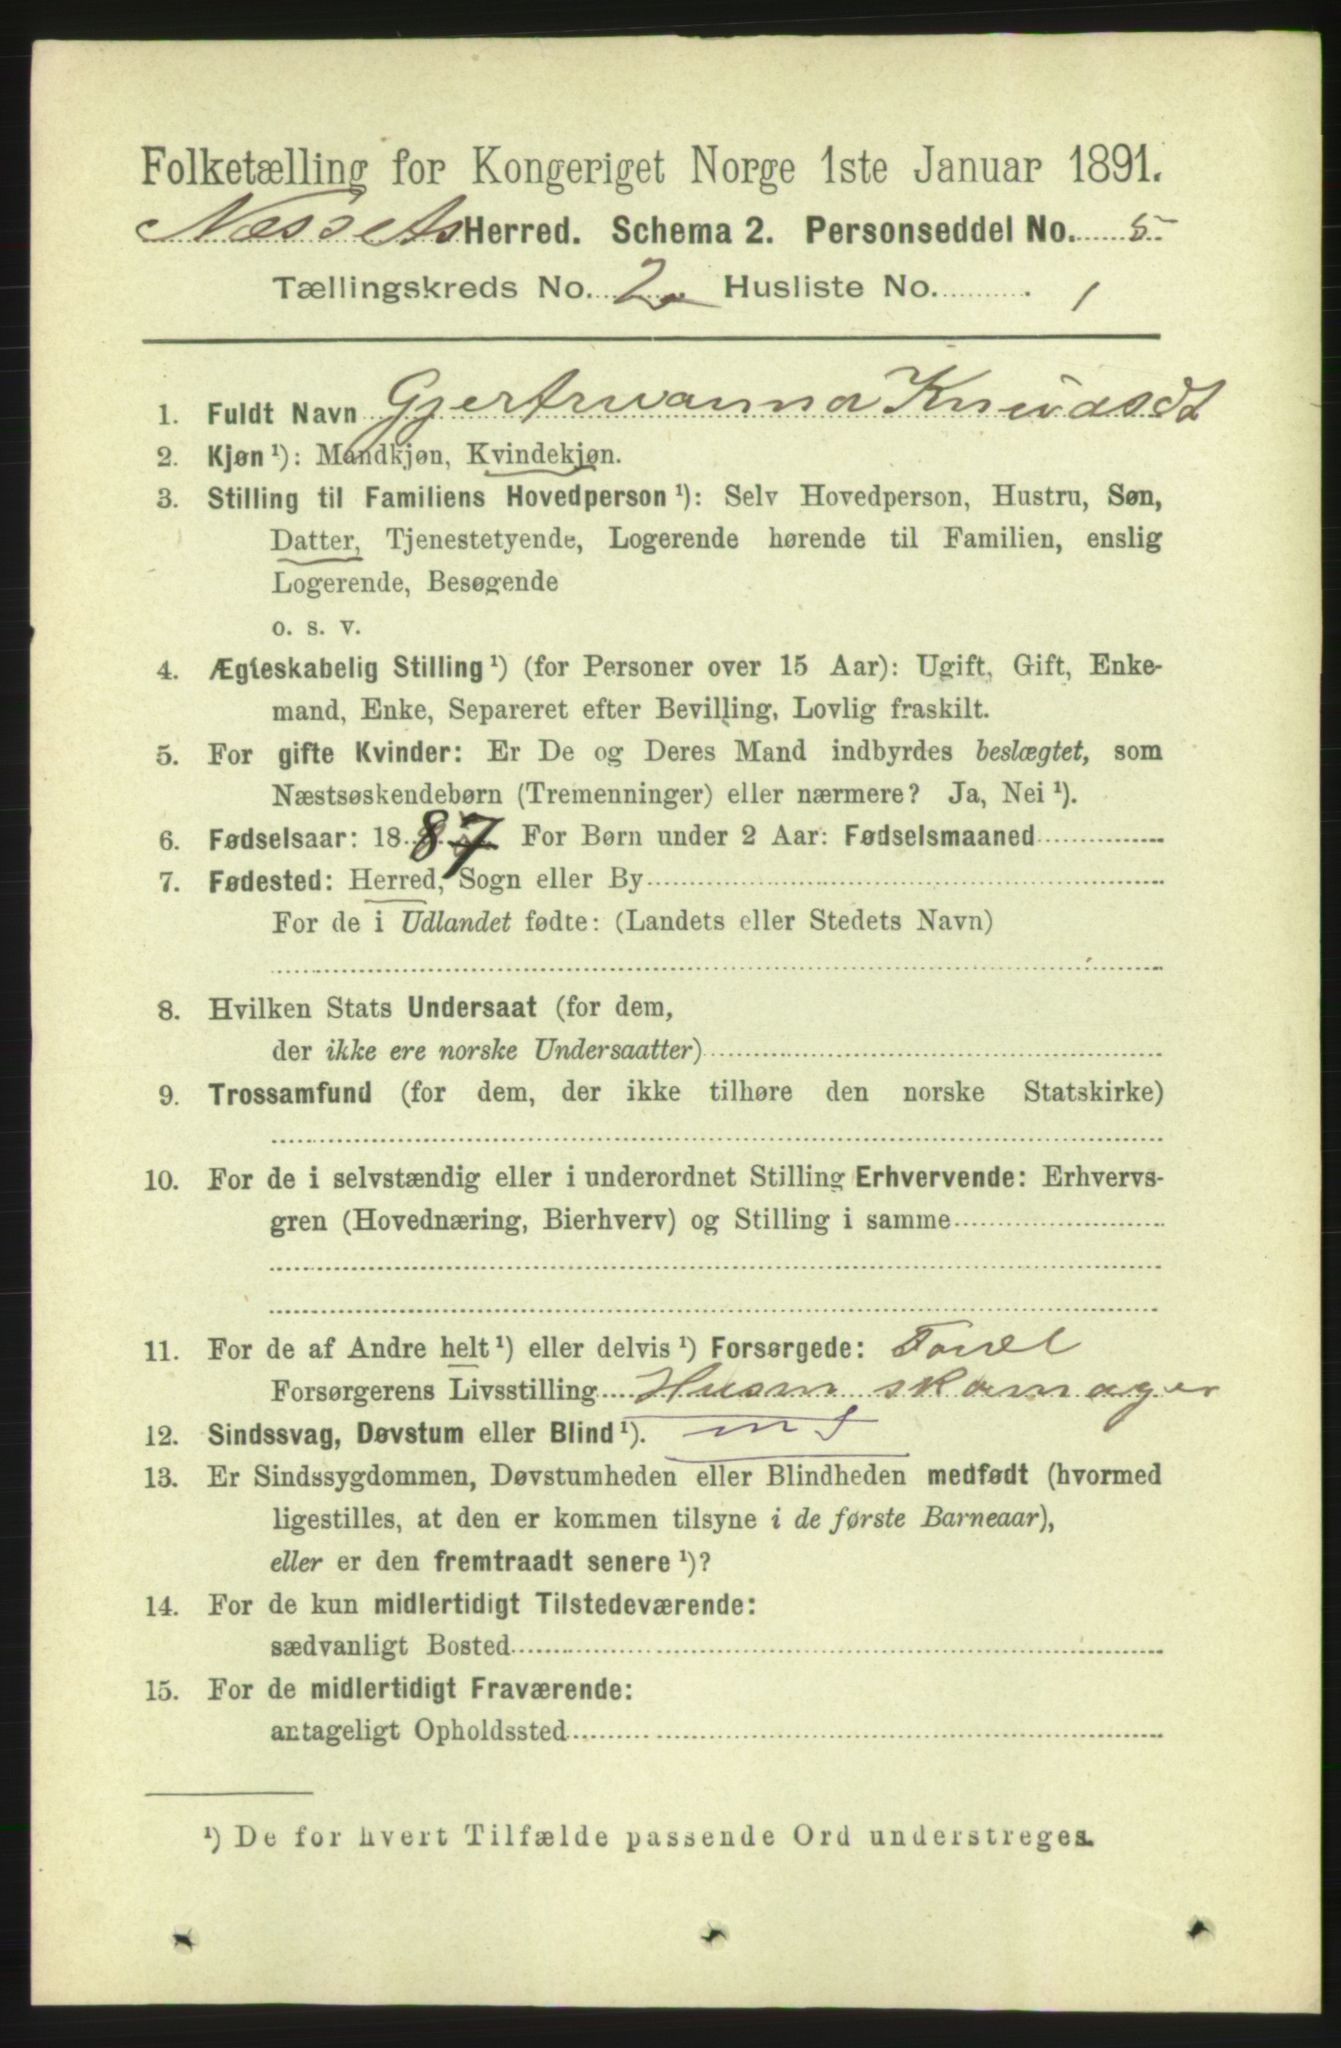 Folketælling for Kongeriget Norge 1ste Januar 1891.
Næssets Herred. Schema 2. Personseddel No. 5
Tællingskreds No. 2 Husliste No. 1
1. Fuldt Navn Gjertrwanna Knudsdt
2. Kjøn ¹): Mandkjøn, Kvindekjøn.
3. Stilling til Familiens Hovedperson ¹): Selv Hovedperson, Hustru, Søn,
Datter, Tjenestetyende, Logerende hørende til Familien, enslig
Logerende, Besøgende
o. s. v.
4. Ægteskabelig Stilling ¹) (for Personer over 15 Aar): Ugift, Gift, Enke-
mand, Enke, Separeret efter Bevilling, Lovlig fraskilt.
5. For gifte Kvinder: Er De og Deres Mand indbyrdes beslægtet, som
Næstsøskendebørn (Tremenninger) eller nærmere? Ja, Nei ¹).
6. Fødselsaar: 1887 For Børn under 2 Aar: Fødselsmaaned
7. Fødested: Herred, Sogn eller By
For de i Udlandet fødte: (Landets eller Stedets Navn)
8. Hvilken Stats Undersaat (for dem,
der ikke ere norske Undersaatter)
9. Trossamfund (for dem, der ikke tilhøre den norske Statskirke)
10. For de i selvstændig eller i underordnet Stilling Erhvervende: Erhvervs-
gren (Hovednæring, Bierhverv) og Stilling i samme
11. For de af Andre helt ¹) eller delvis ¹) Forsørgede:
Forsørgerens Livsstilling Husm skomager
12. Sindssvag, Døvstum eller Blind ¹).
13. Er Sindssygdommen, Døvstumheden eller Blindheden medfødt (hvormed
ligestilles, at den er kommen tilsyne i de første Barneaar),
eller er den fremtraadt senere ¹)?
14. For de kun midlertidigt Tilstedeværende:
sædvanligt Bosted
15. For de midlertidigt Fraværende:
antageligt Opholdssted
¹) De for hvert Tilfælde passende Ord understreges.